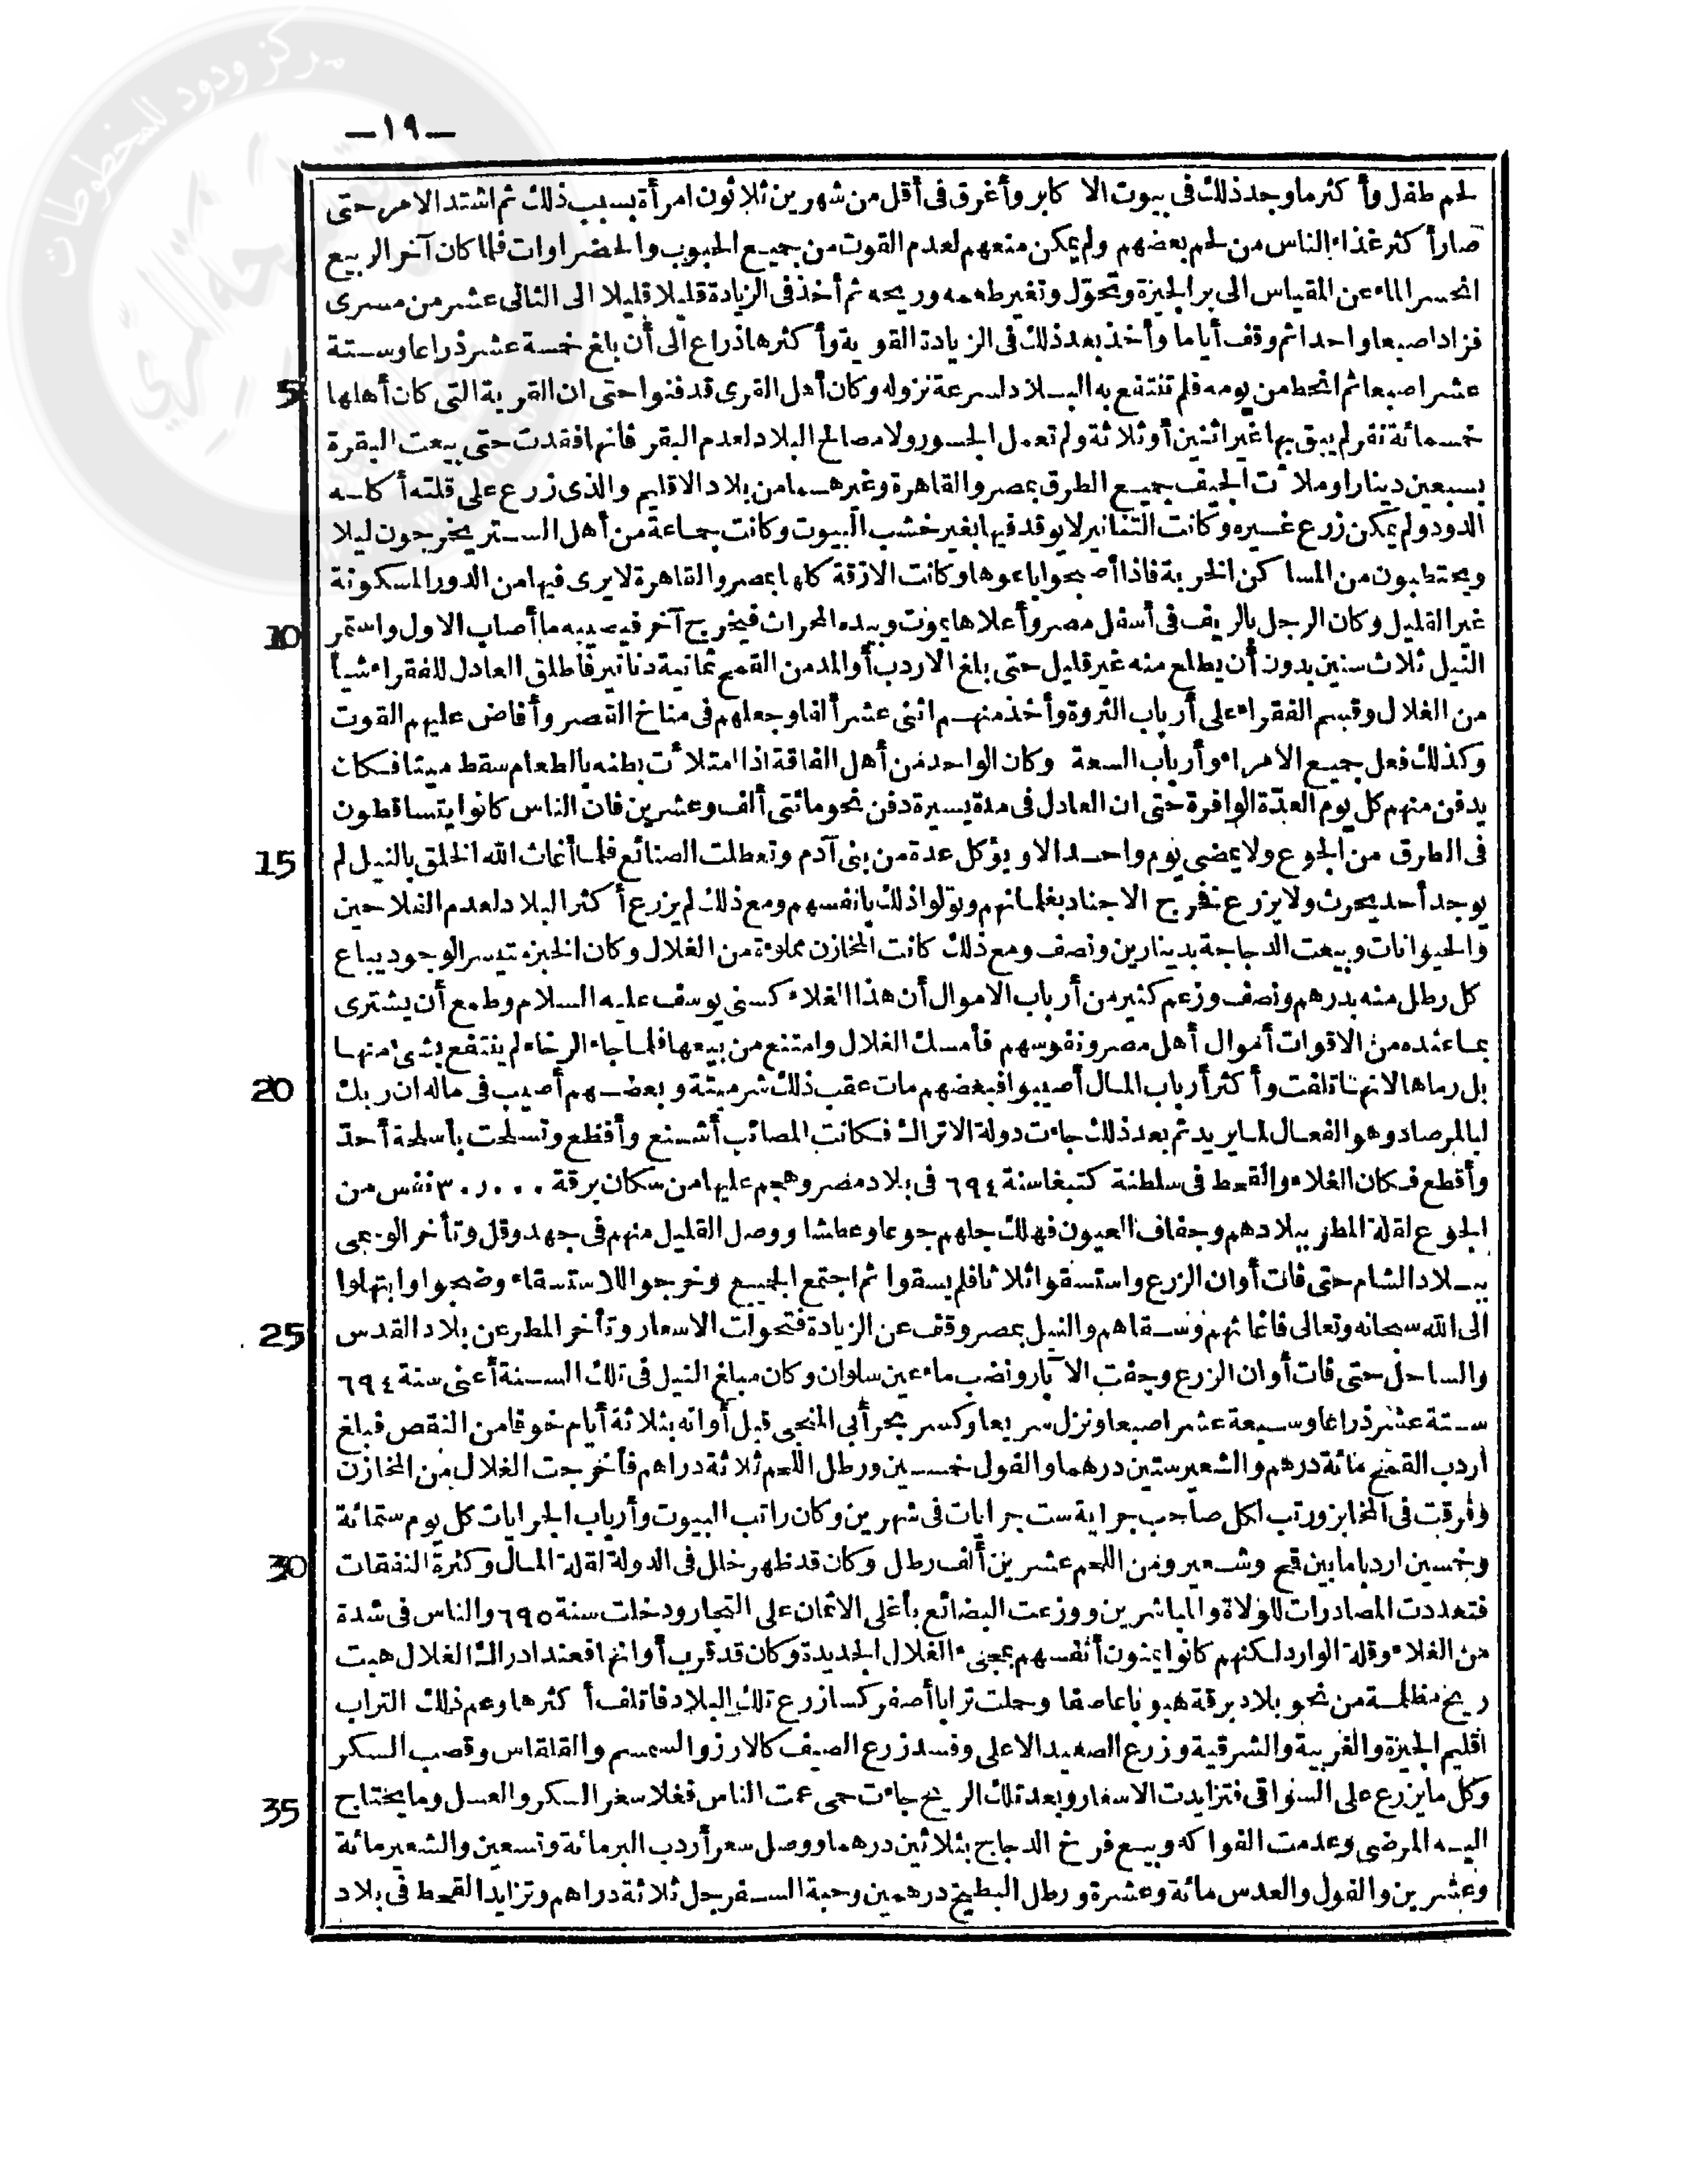 مركز ودود للمخطوطات
—١٩—
لحم طفل وأكثر ما وجد ذلك فى بيوت الاكابر وأغرق فى أقل من شهرين ثلاثون امرأة بسبب ذلك ثم اشتد الامر حتى
صار أكثر غذاء الناس من لحم بعضهم ولم يمكن منعهم لعدم القوت من جميع الحبوب والخضراوات فلما كان آخر الربيع
انحسر الماء عن المقياس الى بر الجيزة وتحوّل وتغير طعمه وريحه ثم أخذ فى الزيادة قليلا قليلا الى الثانى عشر من مسرى
فزاد اصبعا واحدا ثم وقف أياما وأخذ بعد ذلك فى الزيادة القوية وأكثرها ذراع الى أن بلغ خمسة عشر ذراعا وستة
5 عشر اصبعا ثم انحط من يومه فلم تنتفع به البلاد لسرعة نزوله وكان أهل القرى قد فنوا حتى ان القرية التى كان أهلها
خمسمائة نفر لم يبق بها غير اثنين أو ثلاثة ولم تعمل الجسور ولا مصالح البلاد لعدم البقر فانها فقدت حتى بيعت البقرة
بسبعين دينارا وملأت الجيف جميع الطرق بمصر والقاهرة وغيرهما من بلاد الاقليم والذى زرع على قلته أكله
الدود ولم يمكن زرع غيره وكانت التنانير لا يوقد فيها بغير خشب البيوت وكانت جماعة من أهل الستر يخرجون ليلا
ويحتطبون من المساكن الخربة فاذا أصبحوا باعوها وكانت الازقة كلها بمصر والقاهرة لا يرى فيها من الدور المسكونة
10 غير القليل وكان الرجل بالريف فى أسفل مصر وأعلاها يموت وبيده المحراث فيخرج آخر فيصيبه ما أصاب الاول واستمر
النيل ثلاث سنين بدون أن يطلع منه غير قليل حتى بلغ الاردب أو المد من القمح ثمانية دنانير فأطلق العادل للفقراء شيأ
من الغلال وقسم الفقراء على أرباب الثروة وأخذ منهم اثنى عشر ألفا وجعلهم فى مناخ القصر وأفاض عليهم القوت
وكذلك فعل جميع الامراء وأرباب السعة وكان الواحد من أهل الفاقة اذا امتلأت بطنه بالطعام سقط ميتا فكان
يدفن منهم كل يوم العدّة الوافرة حتى ان العادل فى مدة يسيرة دفن نحو مائتى ألف وعشرين فان الناس كانوا يتساقطون
15 فى الطرق من الجوع ولا يمضى يوم واحد الا ويؤكل عدة من بنى آدم وتعطلت الصنائع فلما أغاث الله الخلق بالنيل لم
يوجد أحد يحرث ولا يزرع فخرج الاجناد بغلمانهم وتولوا ذلك بانفسهم ومع ذلك لم يزرع أكثر البلاد لعدم الفلاحين
والحيوانات وبيعت الدجاجة بدينارين ونصف ومع ذلك كانت المخازن مملوءة من الغلال وكان الخبز متيسر الوجود يباع
كل رطل منه بدرهم ونصف وزعم كثير من أرباب الاموال أن هذا الغلاء كسنى يوسف عليه السلام وطمع أن يشترى
بما عنده من الاقوات أموال أهل مصر ونفوسهم فأمسك الغلال وامتنع من بيعها فلما جاء الرخاء لم ينتفع بشىء منها
20 بل رماها لانها تلفت وأكثر أرباب المال أصيبوا فبعضهم مات عقب ذلك شر ميتة وبعضهم أصيب فى ماله ان ربك
لبالمرصاد وهو الفعال لما يريد ثم بعد ذلك جاءت دولة الاتراك فكانت المصائب أشنع وأفظع وتسلحت بأسلحة أحدّ
وأقطع فكان الغلاء والقحط فى سلطنة كتبغا سنة ٦٩٤ فى بلاد مصر وهجم عليها من سكان برقة ٣٠٫٠٠٠ نفس من
الجوع لقلة المطر ببلادهم وجفاف العيون فهلك جلهم جوعا وعطشا ووصل القليل منهم فى جهد وقل وتأخر الوسمى
ببلاد الشام حتى فات أوان الزرع واستسقوا ثلاثا فلم يسقوا ثم اجتمع الجميع وخرجوا للاستسقاء وضجوا وابتهلوا
25 الى الله سبحانه وتعالى فأغاثهم وسقاهم والنيل بمصر وقف عن الزيادة فتحولت الاسعار وتأخر المطر عن بلاد القدس
والساحل حتى فات أوان الزرع وجفت الآبار ونضب ماء عين سلوان وكان مبلغ النيل فى تلك السنة أعنى سنة ٦٩٤
ستة عشر ذراعا وسبعة عشر اصبعا ونزل سريعا وكسر بحر أبى المنجى قبل أوانه بثلاثة أيام خوفا من النقص فبلغ
اردب القمح مائة درهم والشعير ستين درهما والفول خمسين ورطل اللحم ثلاثة دراهم فأخرجت الغلال من المخازن
وفرقت فى المخابز ورتب لكل صاحب جراية ست جرايات فى شهرين وكان راتب البيوت وأرباب الجرايات كل يوم ستمائة
30 وخمسين اردبا ما بين قمح وشعير ومن اللحم عشرين ألف رطل وكان قد ظهر خلل فى الدولة لقلة المال وكثرة النفقات
فتعددت المصادرات للولاة والمباشرين ووزعت البضائع بأغلى الاثمان على التجار ودخلت سنة ٦٩٥ والناس فى شدة
من الغلاء وقلة الوارد لكنهم كانوا يمنون أنفسهم بمجىء الغلال الجديدة وكان قد قرب أوانها فعند ادراك الغلال هبت
ريح مظلمة من نحو بلاد برقة هبوبا عاصفا وحملت ترابا أصفر كسا زرع تلك البلاد فاتلف أكثرها وعم ذلك التراب
اقليم الجيزة والغربية والشرقية وزرع الصعيد الاعلى وفسد زرع الصيف كالارز والسمسم والقلقاس وقصب السكر
35 وكل ما يزرع على السواقى فتزايدت الاسعار وبعد تلك الريح جاءت حمى عمت الناس فغلا سعر السكر والعسل وما يحتاج
اليه المرضى وعدمت الفواكه وبيع فرخ الدجاج بثلاثين درهما ووصل سعر أردب البر مائة وتسعين والشعير مائة
وعشرين والفول والعدس مائة وعشرة ورطل البطيخ درهمين وحبة السفرجل ثلاثة دراهم وتزايد القحط فى بلاد